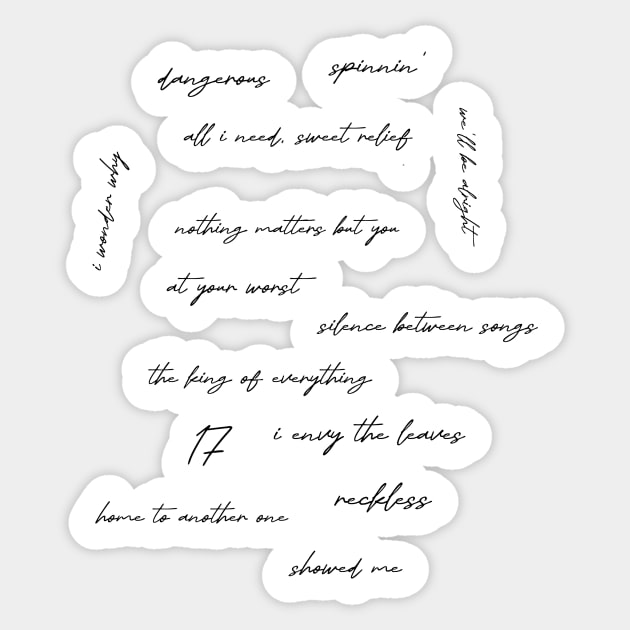 dangerous
spinnin'
all i need, sweet relief
we'll be alright
i wonder why
nothing matters but you
at your worst
silence between songs
the king of everything
17
i envy the leaves
reckless
home to another one
showed me